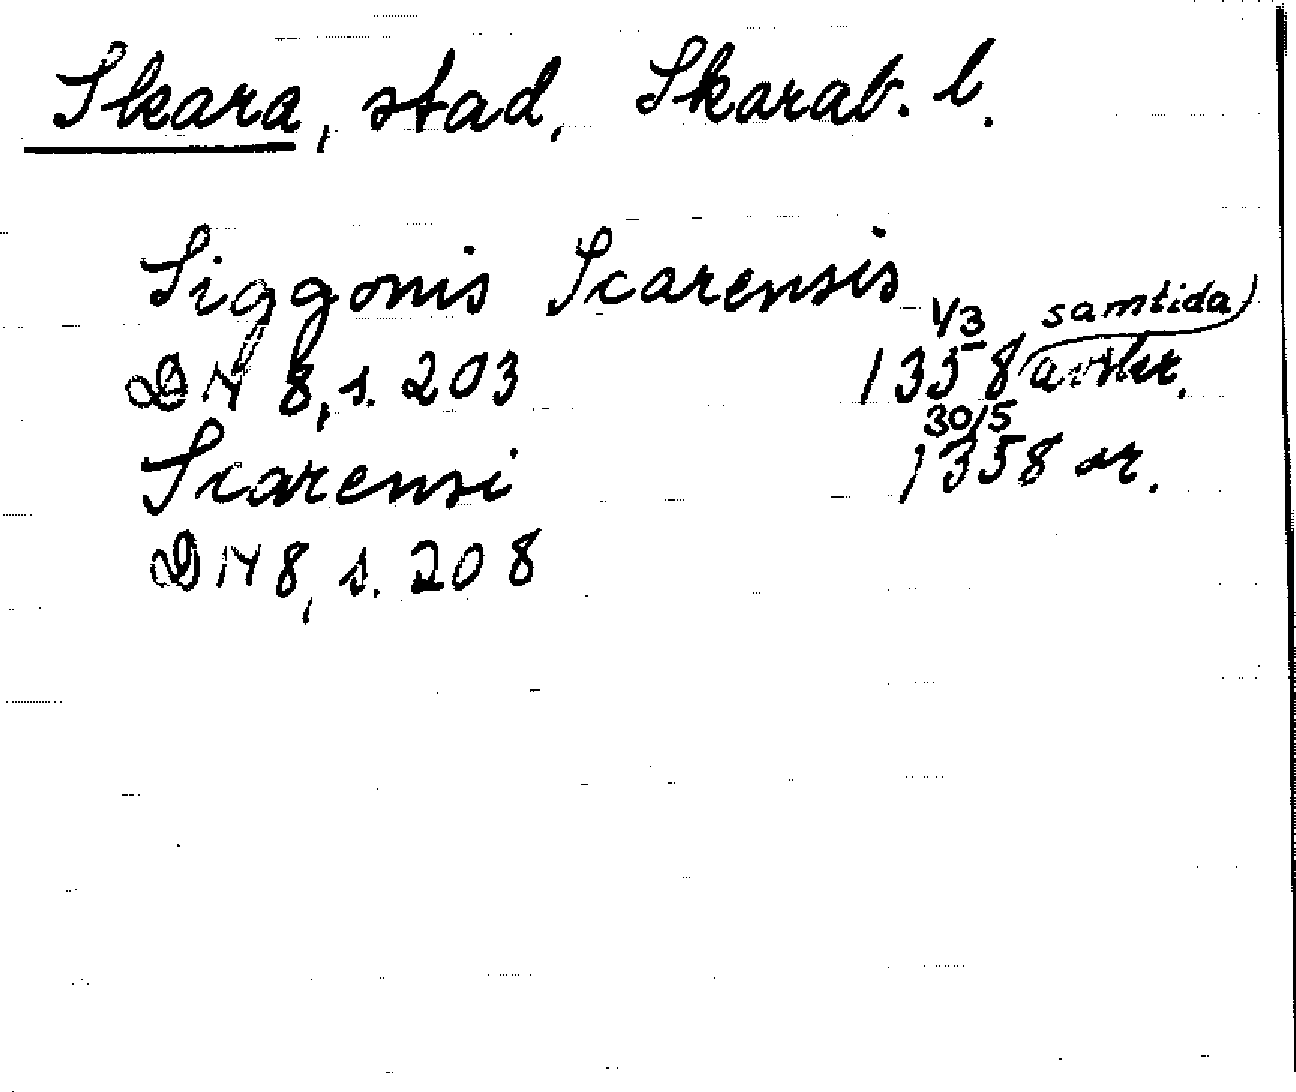 Skara, stad, Skarab. l.
Siggonis Scarensis
DN 8, s. 203 1/3 1358 samtida avskr.
Scarensi 30/5 1358 or.
DN 8, s. 208